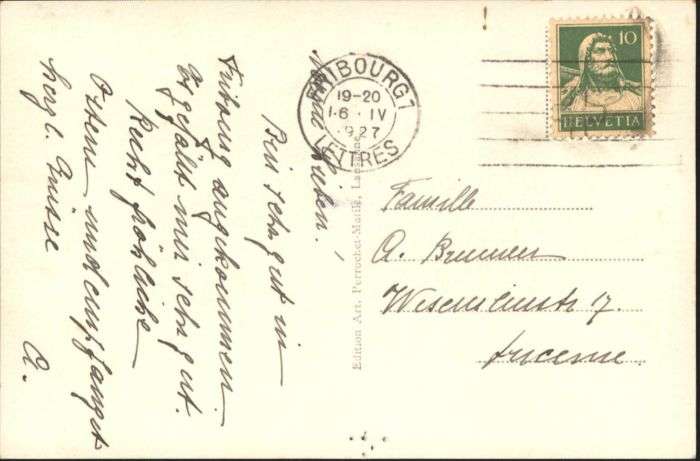 Meine Lieben!
Bin sehr gut in
Fribourg angekommen
Es gefällt mir sehr gut.
Recht fröhliche
Ostern und empfanget
herzl. Grüsse
A.
Edition Art. Perrochet-Matile, Lausanne
FRIBOURG 1
19-20
16. IV
1927
LETTRES
10
HELVETIA
Famille
A. Brunner
Wesemlinstr 17.
Lucerne